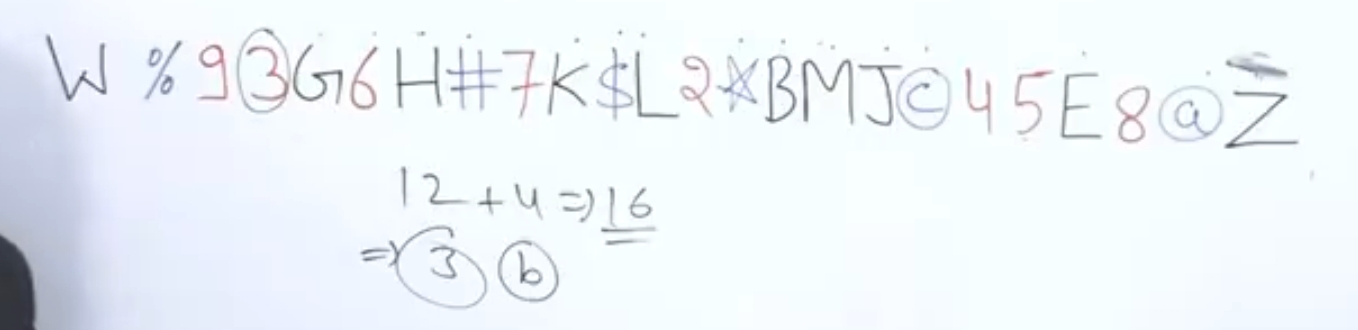 W % 9 3 G 6 H # 7 K $ L 2 ★ B M J © 4 5 E 8 @ Z
12 + 4 ⇒ 16
⇒ 3 b